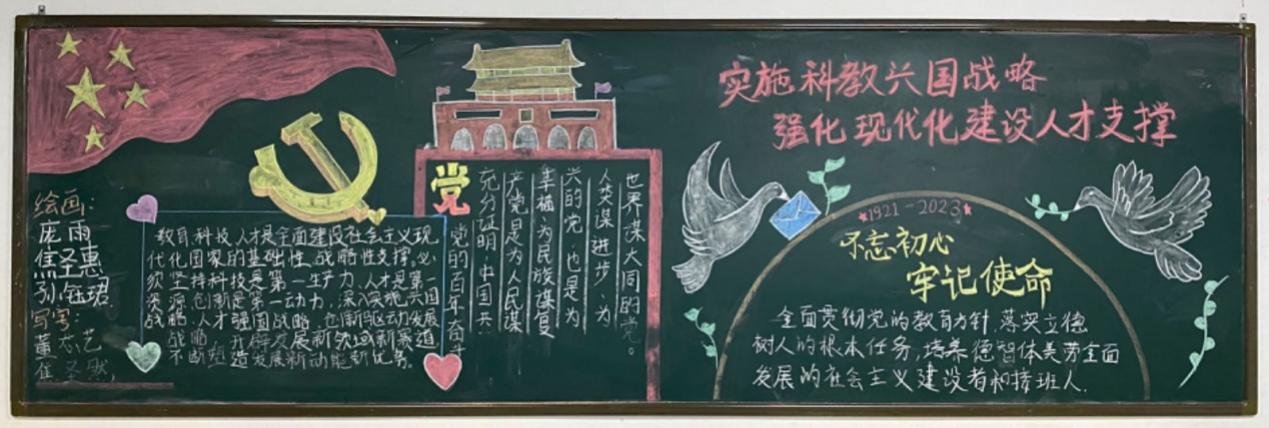 绘画:
庞雨
焦圣惠
孙钰珺
写字:
董志艺
教育,科技,人才是全面建设社会主义现
代化国家的基础性,战略性支撑。必
须坚持科技是第一生产力,人才是第一
资源,创新是第一动力,深入实施兴国
战略,人才强国战略,创新驱动发展
战略,开辟发展新领域新赛道
不断塑造发展新动能新优势。
党
党的百年奋斗
充分证明,中国共
产党是为人民谋
幸福,为民族谋复
兴的党,也是为
人类谋进步,为
世界谋大同的党。
实施科教兴国战略
强化现代化建设人才支撑
1921-2023
不忘初心
牢记使命
全面贯彻党的教育方针,落实立德
树人的根本任务,培养德智体美劳全面
发展的社会主义建设者和接班人.